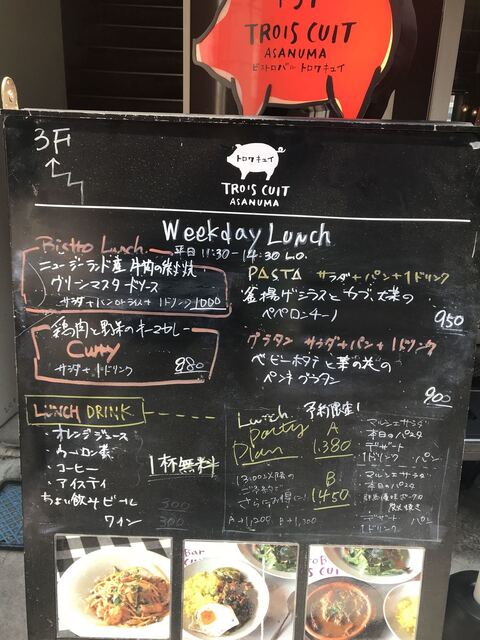 TROIS CUIT
ASANUMA
ビストロバル トロワキュイ
3F
トロワキュイ
TROIS CUIT
ASANUMA
Weekday Lunch
平日 11:30-14:30 L.O.
Bistro Lunch
ニュージーランド産
グリーンマスタードソース
サラダ+パンorライス+1ドリンク 1000
鶏肉と野菜のキーマカレー
Curry
サラダ+1ドリンク 880
PASTA サラダ+パン+1ドリンク
釜揚げシラスとカブ、大葉の
ペペロンチーノ
950
グラタン サラダ+パン+1ドリンク
ベビーホタテと菜の花の
ペンネグラタン
900
LUNCH DRINK
・オレンジジュース
・ウーロン茶
・コーヒー
・アイスティ
1杯無料
ちょい飲みビール 500
ワイン 300
Lunch 予約限定!
Party
Plan
A
1,380
B
1450
13:00以降の
ご予約で
さらにお得に!
A→1,200 B→1,300
マルシェサラダ
本日のパスタ
デザート
1ドリンク パン
マルシェサラダ
本日のパスタ
デザート パン
1ドリンク